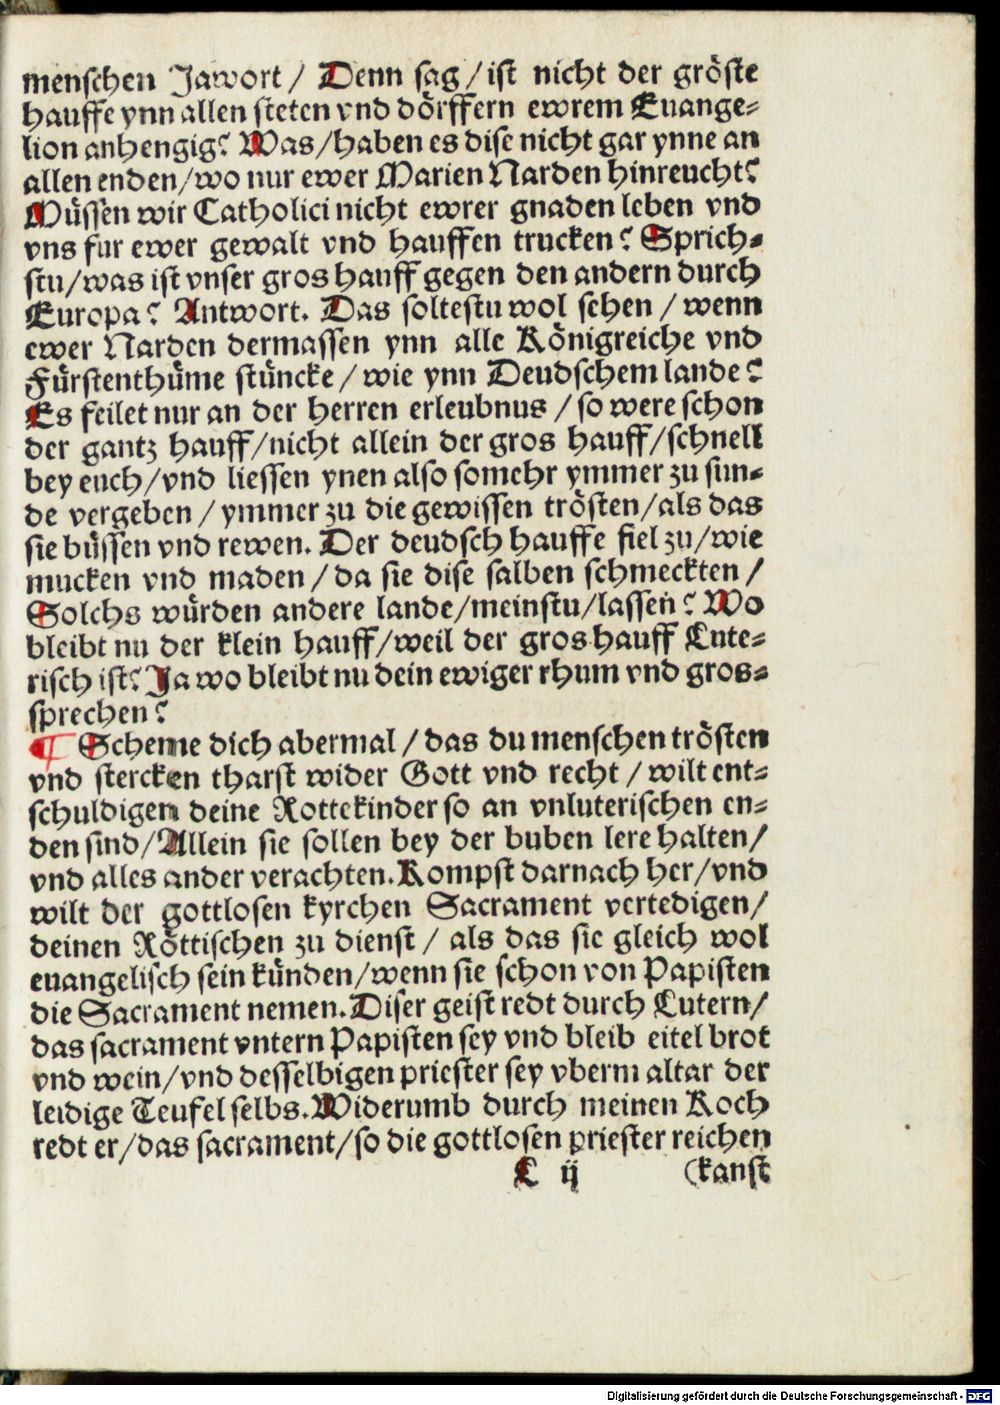 menschen Jawort / Denn sag / ist nicht der gröste
hauffe ynn allen steten vnd dörffern ewrem Euange-
lion anhengig? Was/haben es dise nicht gar ynne an
allen enden/wo nur ewer Marien Narden hinreucht?
Müssen wir Catholici nicht ewrer gnaden leben vnd
vns fur ewer gewalt vnd hauffen trucken? Sprich-
stu/was ist vnser gros hauff gegen den andern durch
Europa? Antwort. Das soltestu wol sehen / wenn
ewer Narden dermassen ynn alle Königreiche vnd
Fürstenthüme stüncke / wie ynn Deudschem lande?
Es feilet nur an der herren erleubnus / so were schon
der gantz hauff/nicht allein der gros hauff/schnell
bey euch/vnd liessen ynen also somehr ymmer zu sun-
de vergeben / ymmer zu die gewissen trösten/als das
sie büssen vnd rewen. Der deudsch hauffe fiel zu/wie
mucken vnd maden / da sie dise salben schmeckten /
Solchs würden andere lande/meinstu/lassen? Wo
bleibt nu der klein hauff/weil der gros hauff Lute-
risch ist? Ja wo bleibt nu dein ewiger rhum vnd gros-
sprechen?
¶ Scheme dich abermal / das du menschen trösten
vnd stercken tharst wider Gott vnd recht / wilt ent-
schuldigen deine Rottekinder so an vnluterischen en-
den sind/Allein sie sollen bey der buben lere halten/
vnd alles ander verachten. Kompst darnach her/vnd
wilt der gottlosen kyrchen Sacrament vertedigen/
deinen Röttischen zu dienst / als das sie gleich wol
euangelisch sein künden/wenn sie schon von Papisten
die Sacrament nemen. Diser geist redt durch Lutern/
das sacrament vntern Papisten sey vnd bleib eitel brot
vnd wein/vnd desselbigen priester sey vberm altar der
leidige Teufel selbs. Widerumb durch meinen Koch
redt er/das sacrament/so die gottlosen priester reichen
C ij (kanst
Digitalisierung gefördert durch die Deutsche Forschungsgemeinschaft - DFG